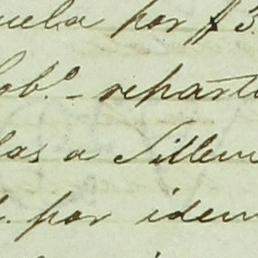 uela por f 3
ob.º - reparti
las a Sillem
. por idem